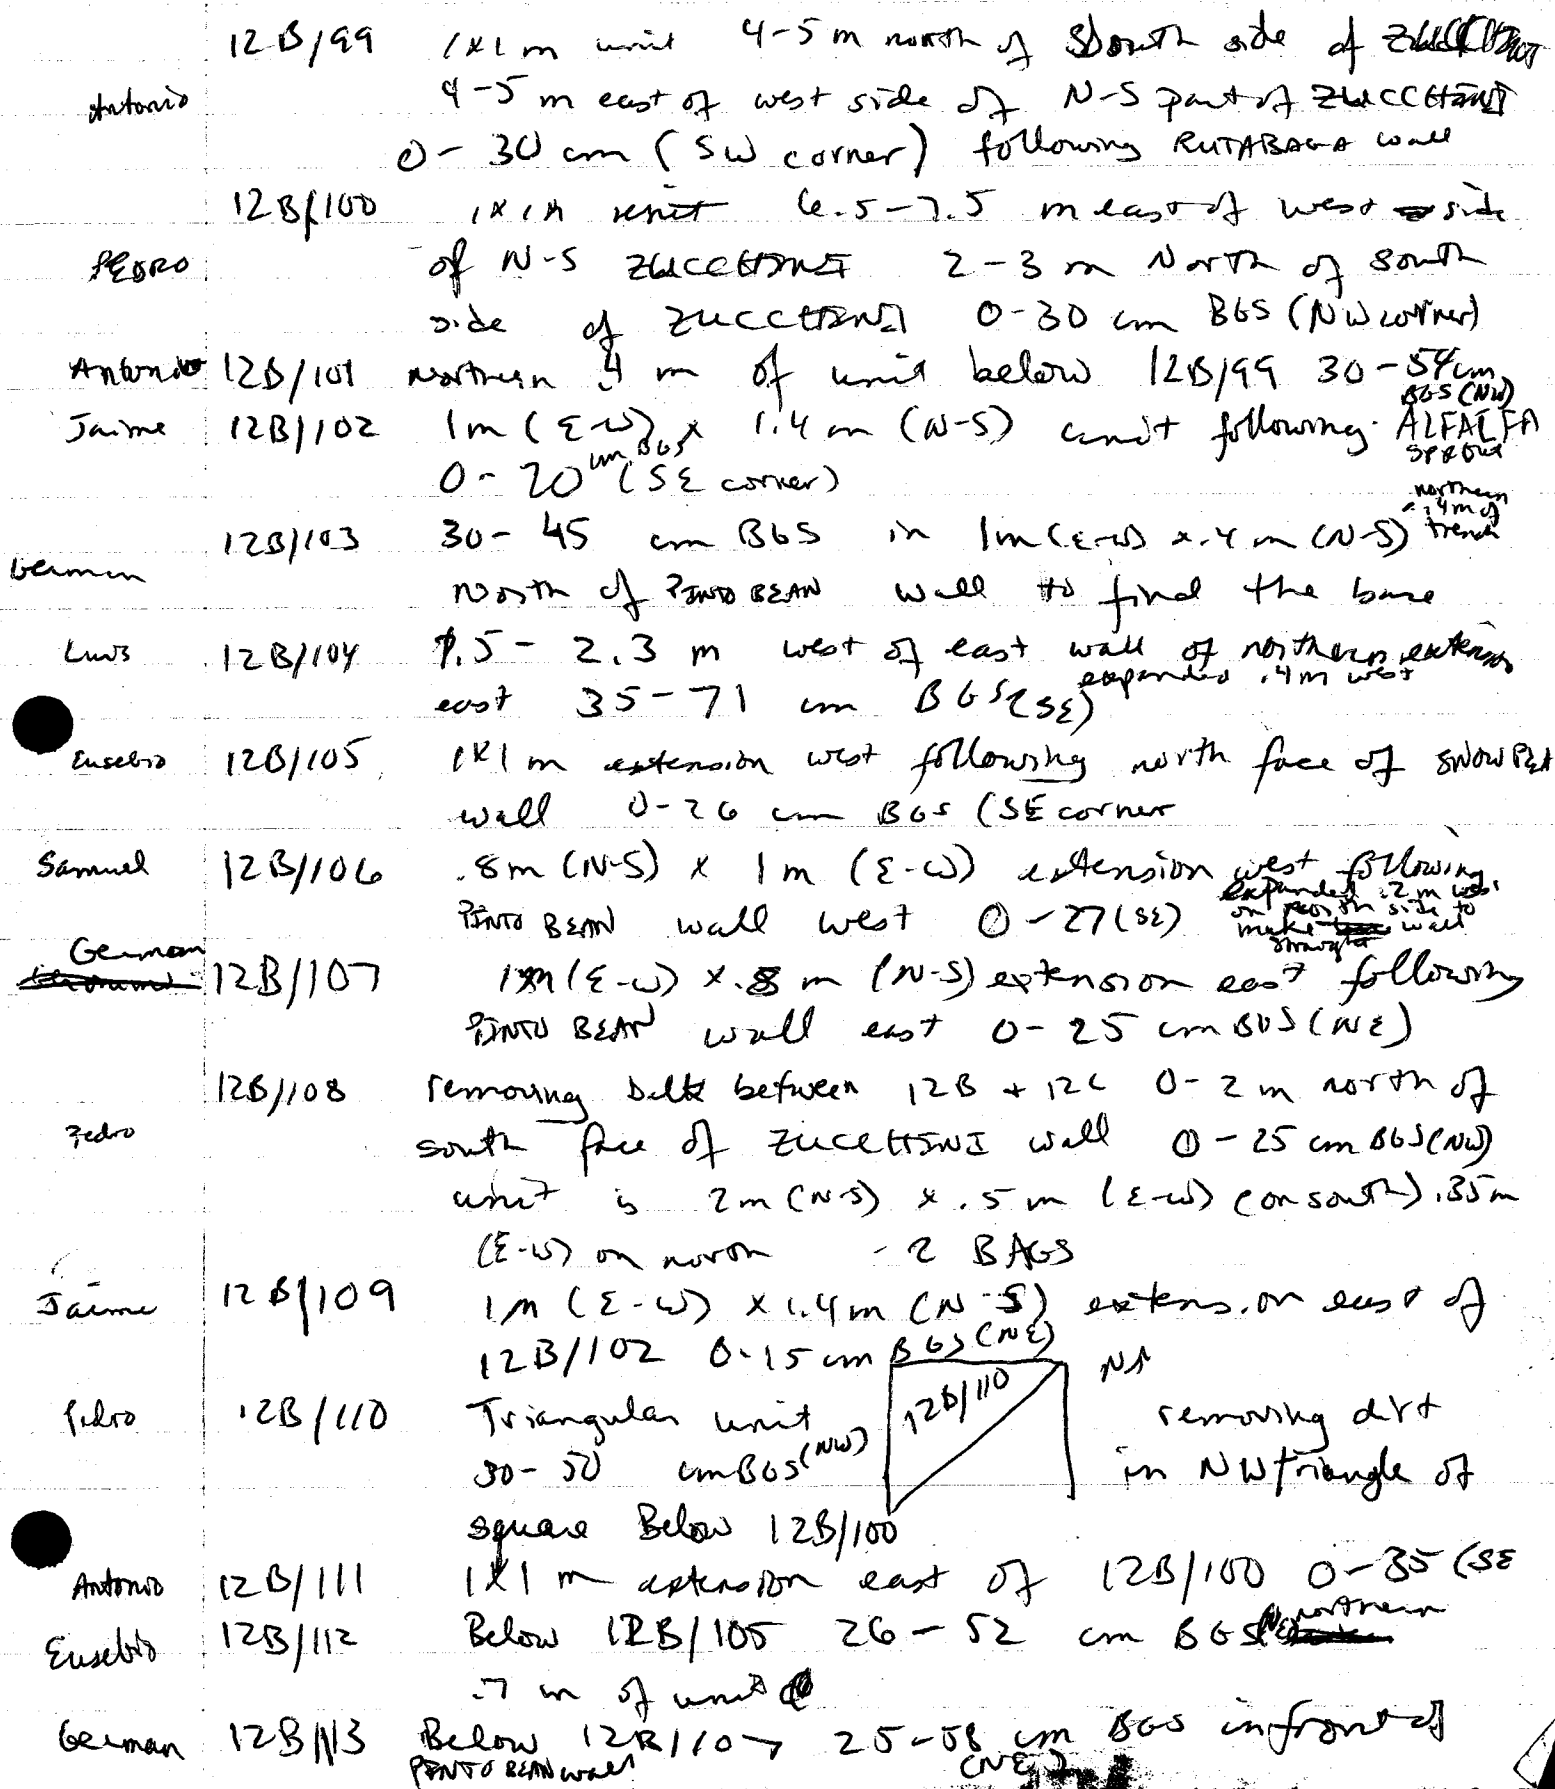 12B/99 1x1 m unit 4-5 m north of South side of ZUCCHINI
Antonio 4-5 m east of west side of N-S part of ZUCCHINI
0-30 cm (SW corner) following RUTABAGA wall
12B/100 1x1m unit 6.5-7.5 m east of west side
PEDRO of N-S ZUCCHINI 2-3 m North of south
side of ZUCCHINI 0-30 cm BGS (NW corner)
Antonio 12B/101 northern .4 m of unit below 12B/99 30-54cm
BGS (NW)
Jaime 12B/102 1m (E-W) x 1.4 m (N-S) unit following ALFALFA
SPROUT
0-20 cm BGS (SE corner)
northern
.4m of
12B/103 30-45 cm BGS in 1m (E-W) x .4 m (N-S) trench
German north of PINTO BEAN wall to find the base
Luis 12B/104 1.5-2.3 m west of east wall of northern extension
expanded .4m west
east 35-71 cm BGS (SE)
Eusebio 12B/105 1x1 m extension west following north face of SNOW PEA
wall 0-26 cm BGS (SE corner
Samuel 12B/106 .8m (N-S) x 1m (E-W) extension west following
PINTO BEAN wall west 0-27 (SE) expanded .2 m west
on north side to
make wall
straight
German 12B/107 1m (E-W) x .8 m (N-S) extension east following
PINTO BEAN wall east 0-25 cm BGS (NE)
12B/108 removing balk between 12B + 12C 0-2 m north of
Pedro south face of ZUCCHINI wall 0-25 cm BGS (NW)
unit is 2m (N-S) x .5 m (E-W) (on south) .35m
(E-W) on north - 2 BAGS
Jaime 12B/109 1m (E-W) x 1.4m (N-S) extension east of
12B/102 0-15 cm BGS (NE)
N↑
12B/110
Pedro 12B/110 Triangular unit removing dirt
30-50 cm BGS (NW) in NW triangle of
square Below 12B/100
Antonio 12B/111 1x1 m extension east of 12B/100 0-35 (SE
Eusebio 12B/112 Below 12B/105 26-52 cm BGS (NE) northern
.7 m of unit
German 12B/113 Below 12B/107 25-58 cm BGS in front of
PINTO BEAN wall (NE)